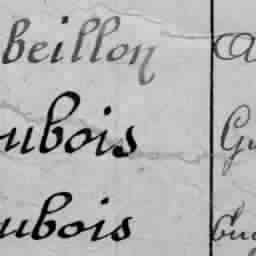 beillon
ubois
ubois